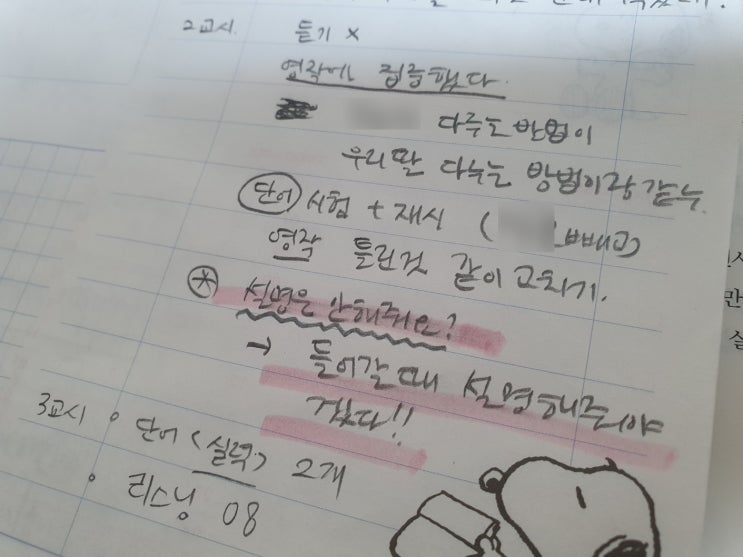 2교시 듣기 x
영작에 집중했다.
다루는 방법이
우리딸 다루는 방법이랑 같누.
단어 시험 + 재시 ( 빼고)
영작 틀린것 같이 고치기.
설명은 안해줘요?
→ 들어갈때 설명해주어야
겠다!!
3교시 • 단어 (실력) 2개
• 리스닝 08